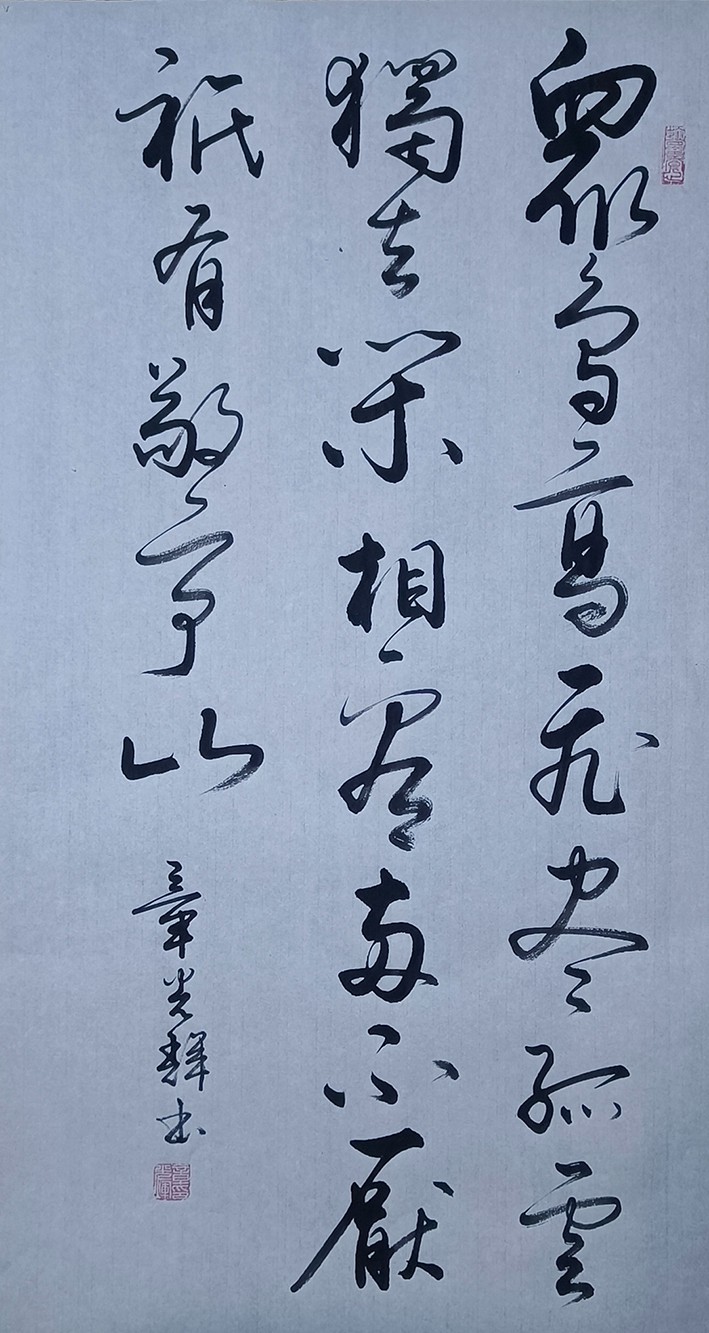 衆鳥高飛盡孤雲
獨去閑相看兩不厭
祇有敬亭山
章光輝书